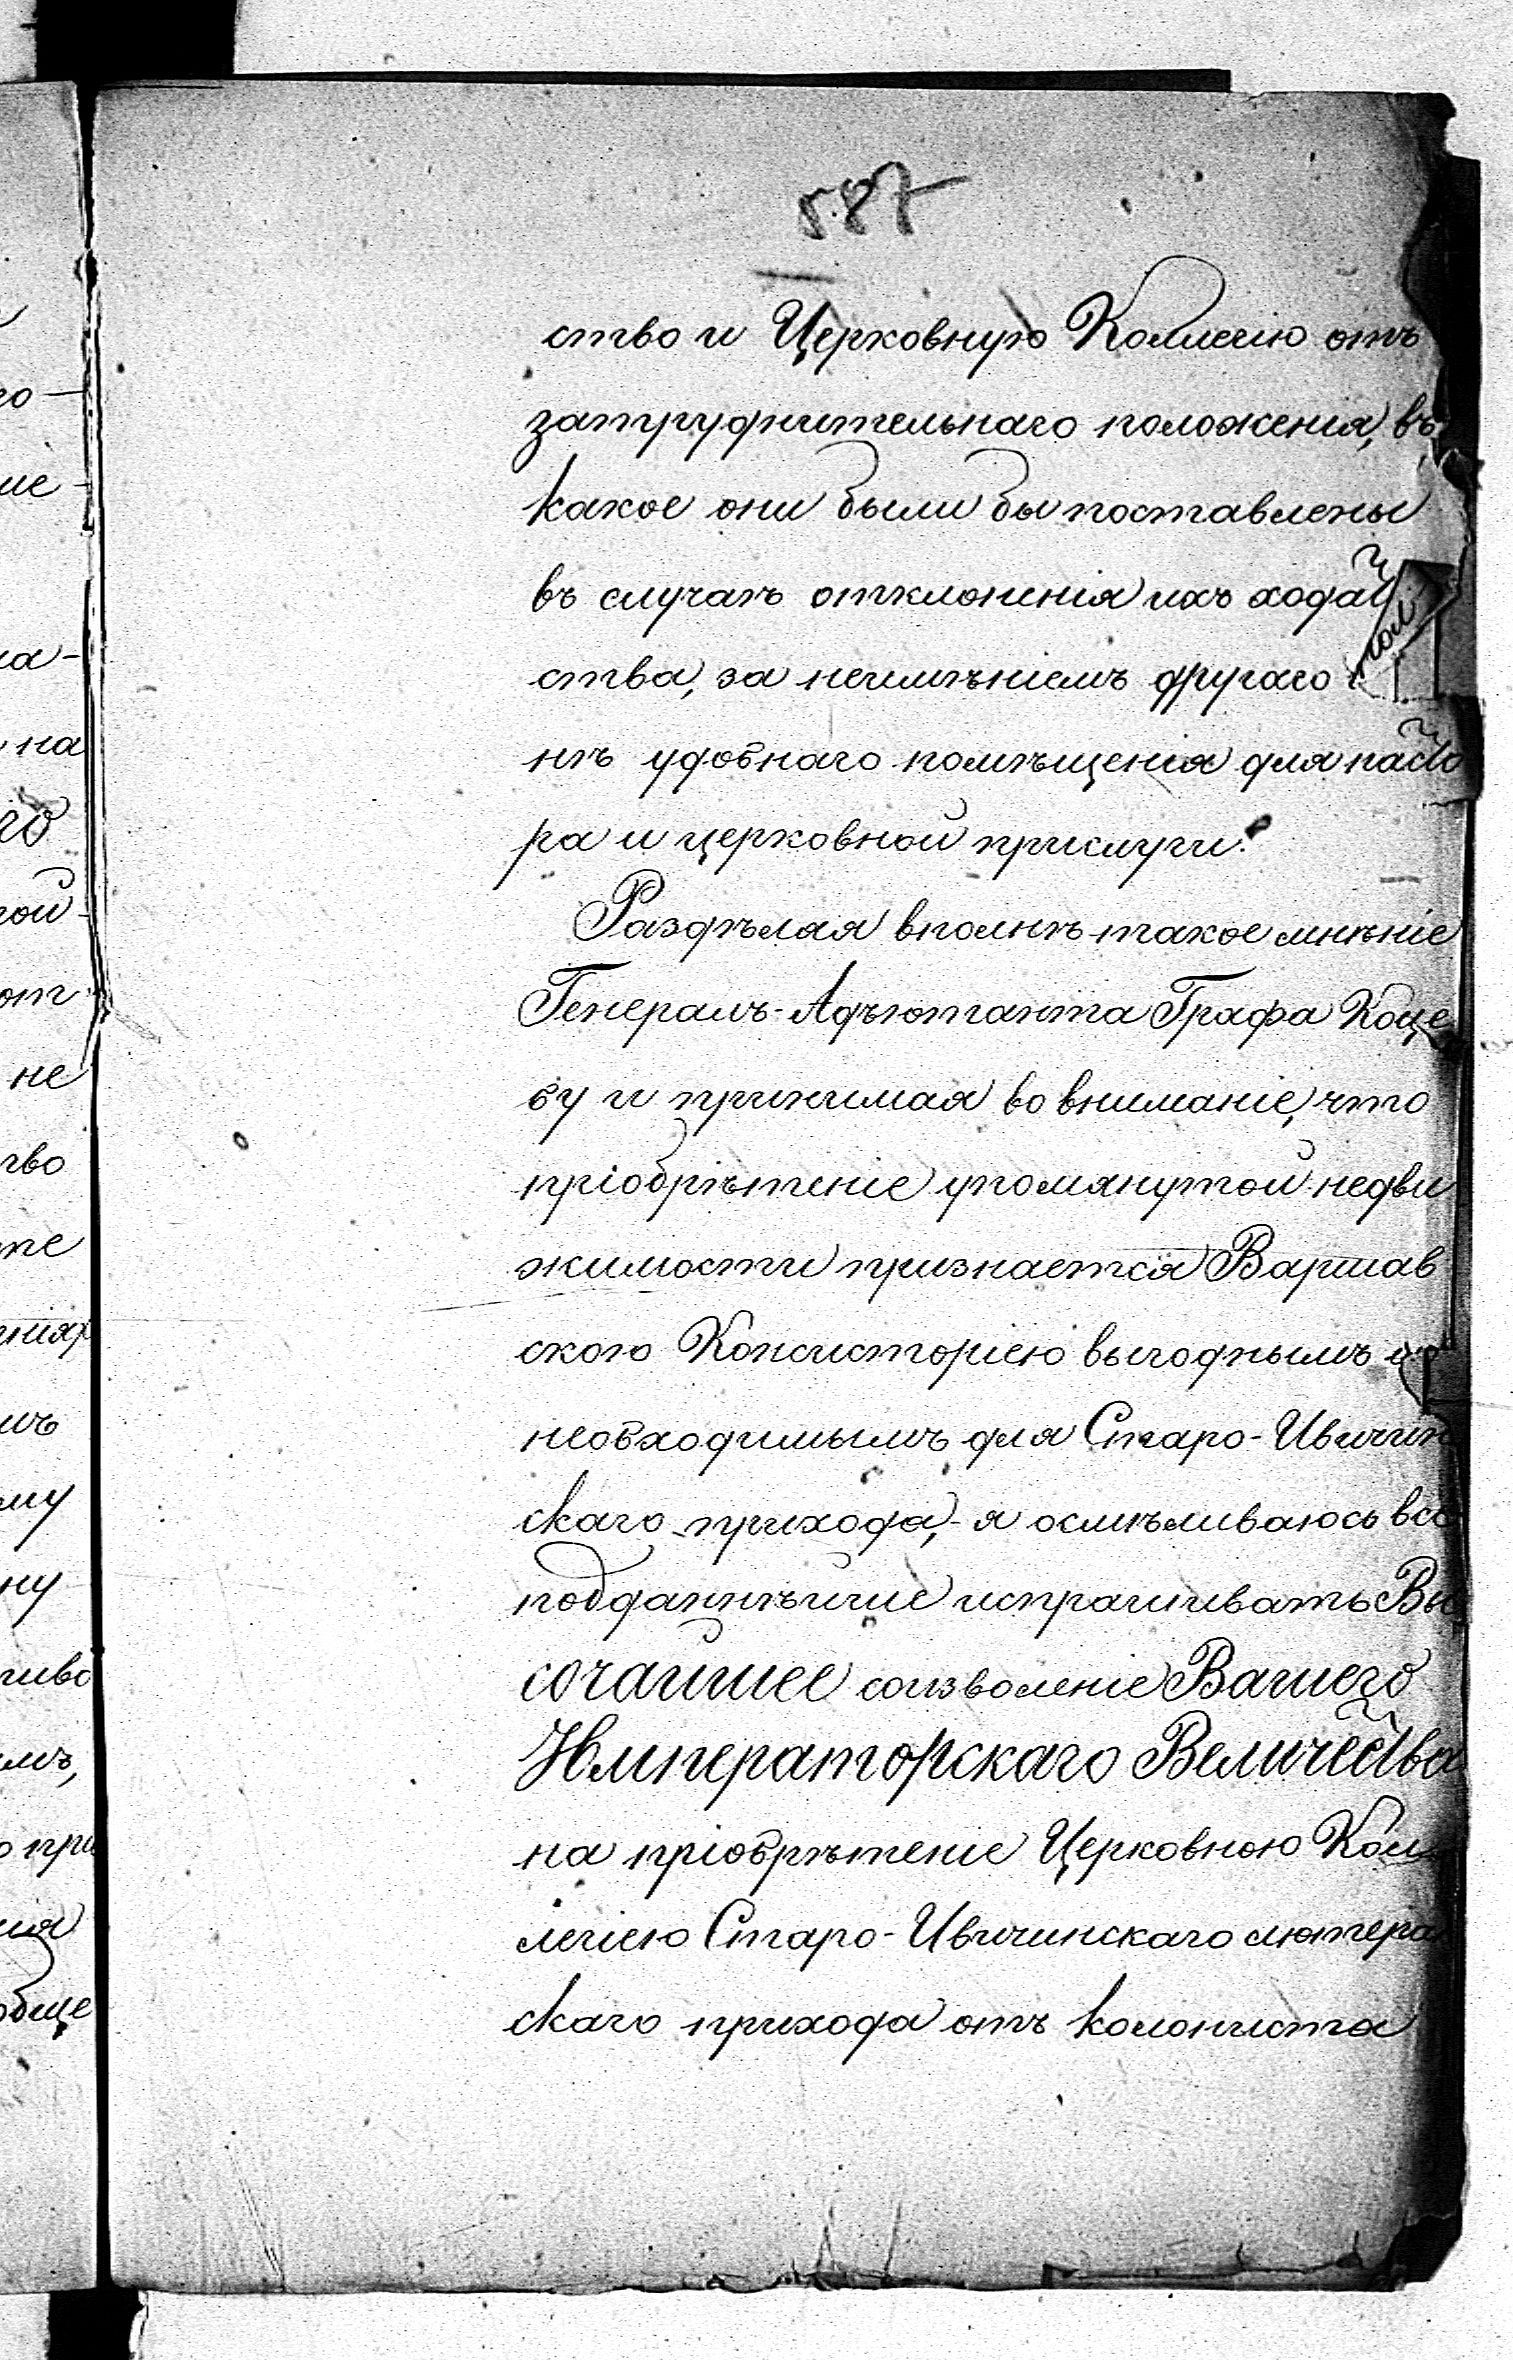 587
ство и Церковную Коллегію отъ
затруднительнаго положенія, въ
какое они были бы поставлены
въ случаѣ отклоненія ихъ ходатай
ства, за неимѣніемъ другаго впол
нѣ удобнаго помѣщенія для пасто
ра и церковной прислуги.
Раздѣляя вполнѣ такое мнѣніе
Генералъ-Адъютанта Графа Коце
бу и принимая во вниманіе, что
пріобрѣтеніе упомянутой недви
жимости признается Варшав
скою Консисторіею выгоднымъ и
необходимымъ для Старо-Ивичин
скаго прихода, - я осмѣливаюсь все
подданнѣйше испрашивать Вы
сочайшее соизволеніе Вашего
Императорскаго Величества
на пріобрѣтеніе Церковною Кол
легіею Старо-Ивичинскаго лютеран
скаго прихода отъ колониста